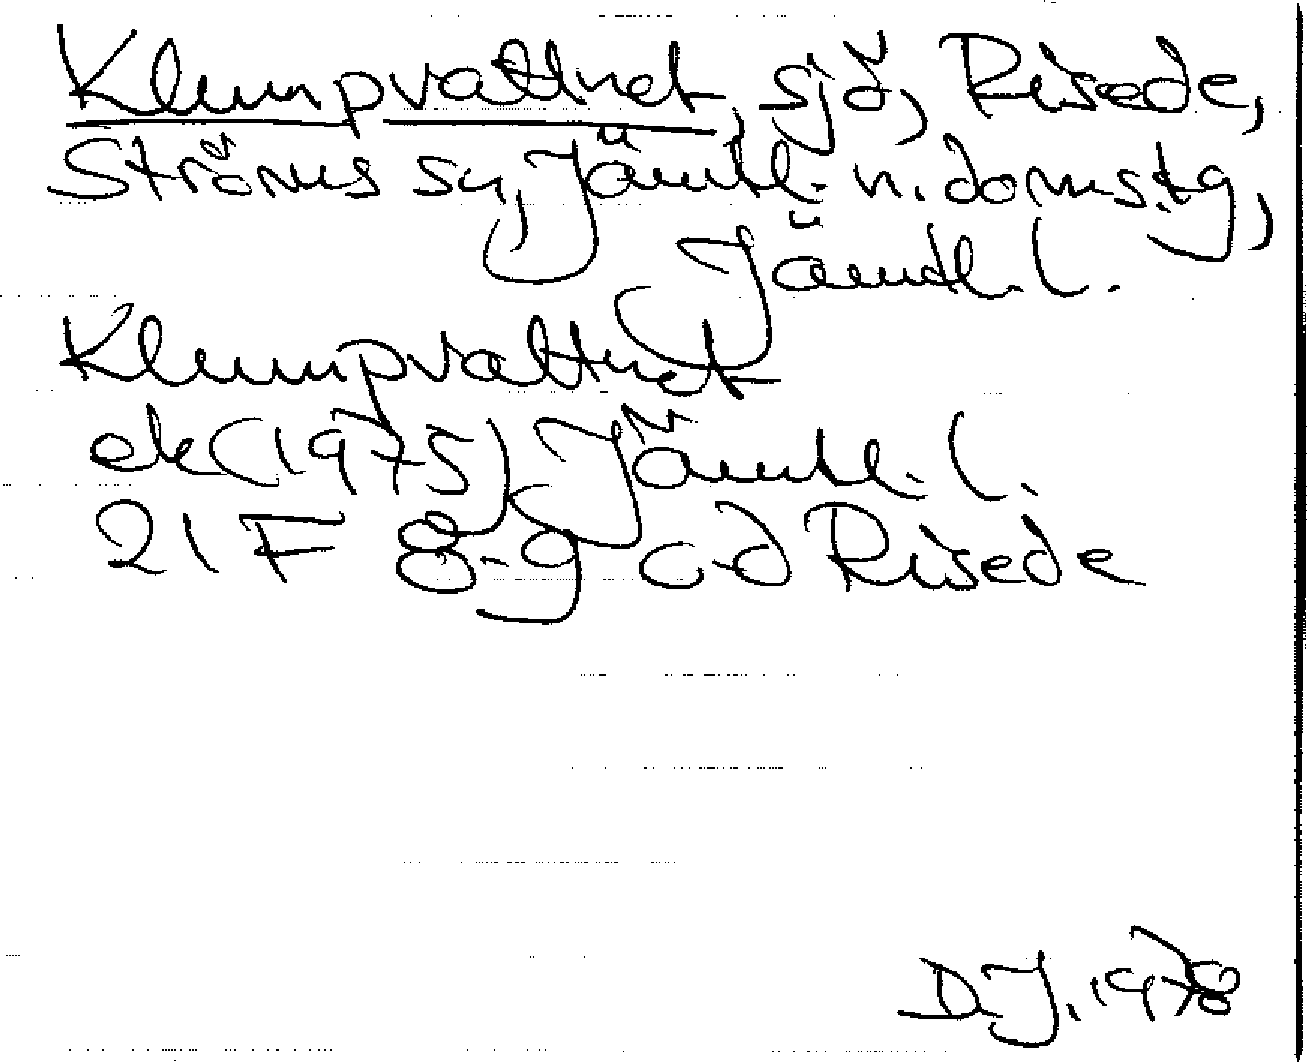 Klumpvattnet, sjö, Risede,
Ströms sn, Jämtl. n. domstg,
Jämtl. l.
Klumpvattnet
ek (1975) Jämtl. l.
21 F 8-9 c-d Risede
D.J. 1978